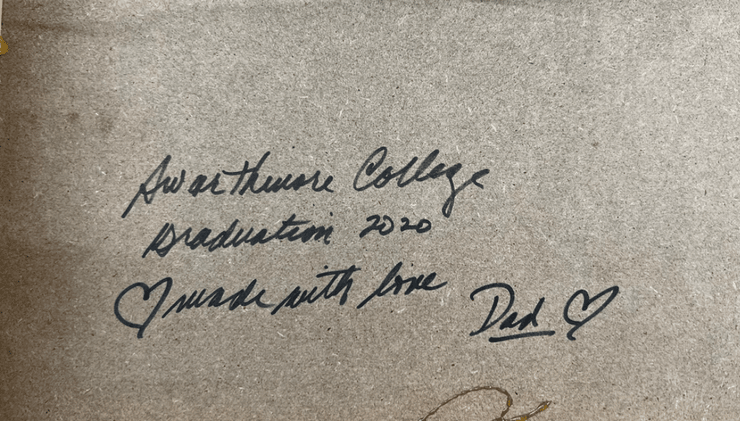 Swarthmore College
Graduation 2020
♡ made with love
Dad ♡